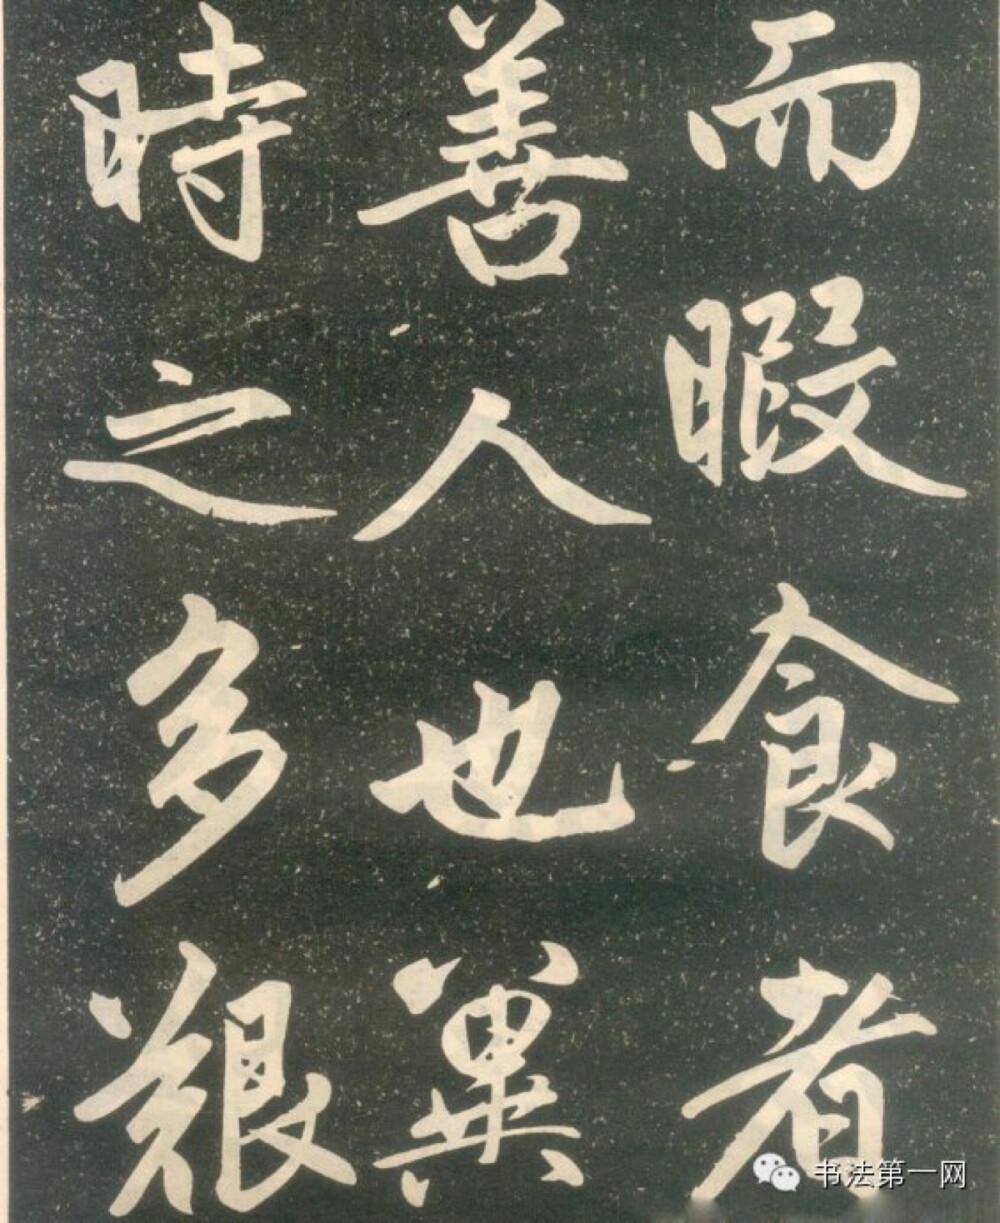 而暇食者
善人也冀
時之多艱
书法第一网